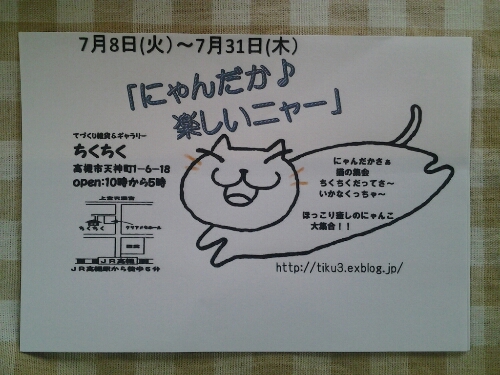 7月8日(火)～7月31日(木)
「にゃんだか♪
楽しいニャー」
てづくり雑貨&ギャラリー
ちくちく
高槻市天神町1-6-18
open:10時から5時
にゃんだかさぁ
猫の集会
ちくちくだってさ～
いかなくっちゃ～
ほっこり癒しのにゃんこ
大集合！！
上宮天満宮
ちくちく
JR高槻
JR高槻駅から徒歩5分
http://tiku3.exblog.jp/